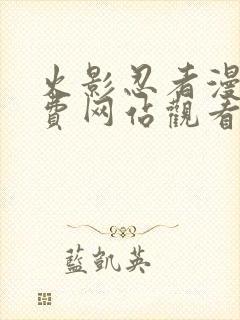 火影忍者漫
费网佔觀看
藍凱英